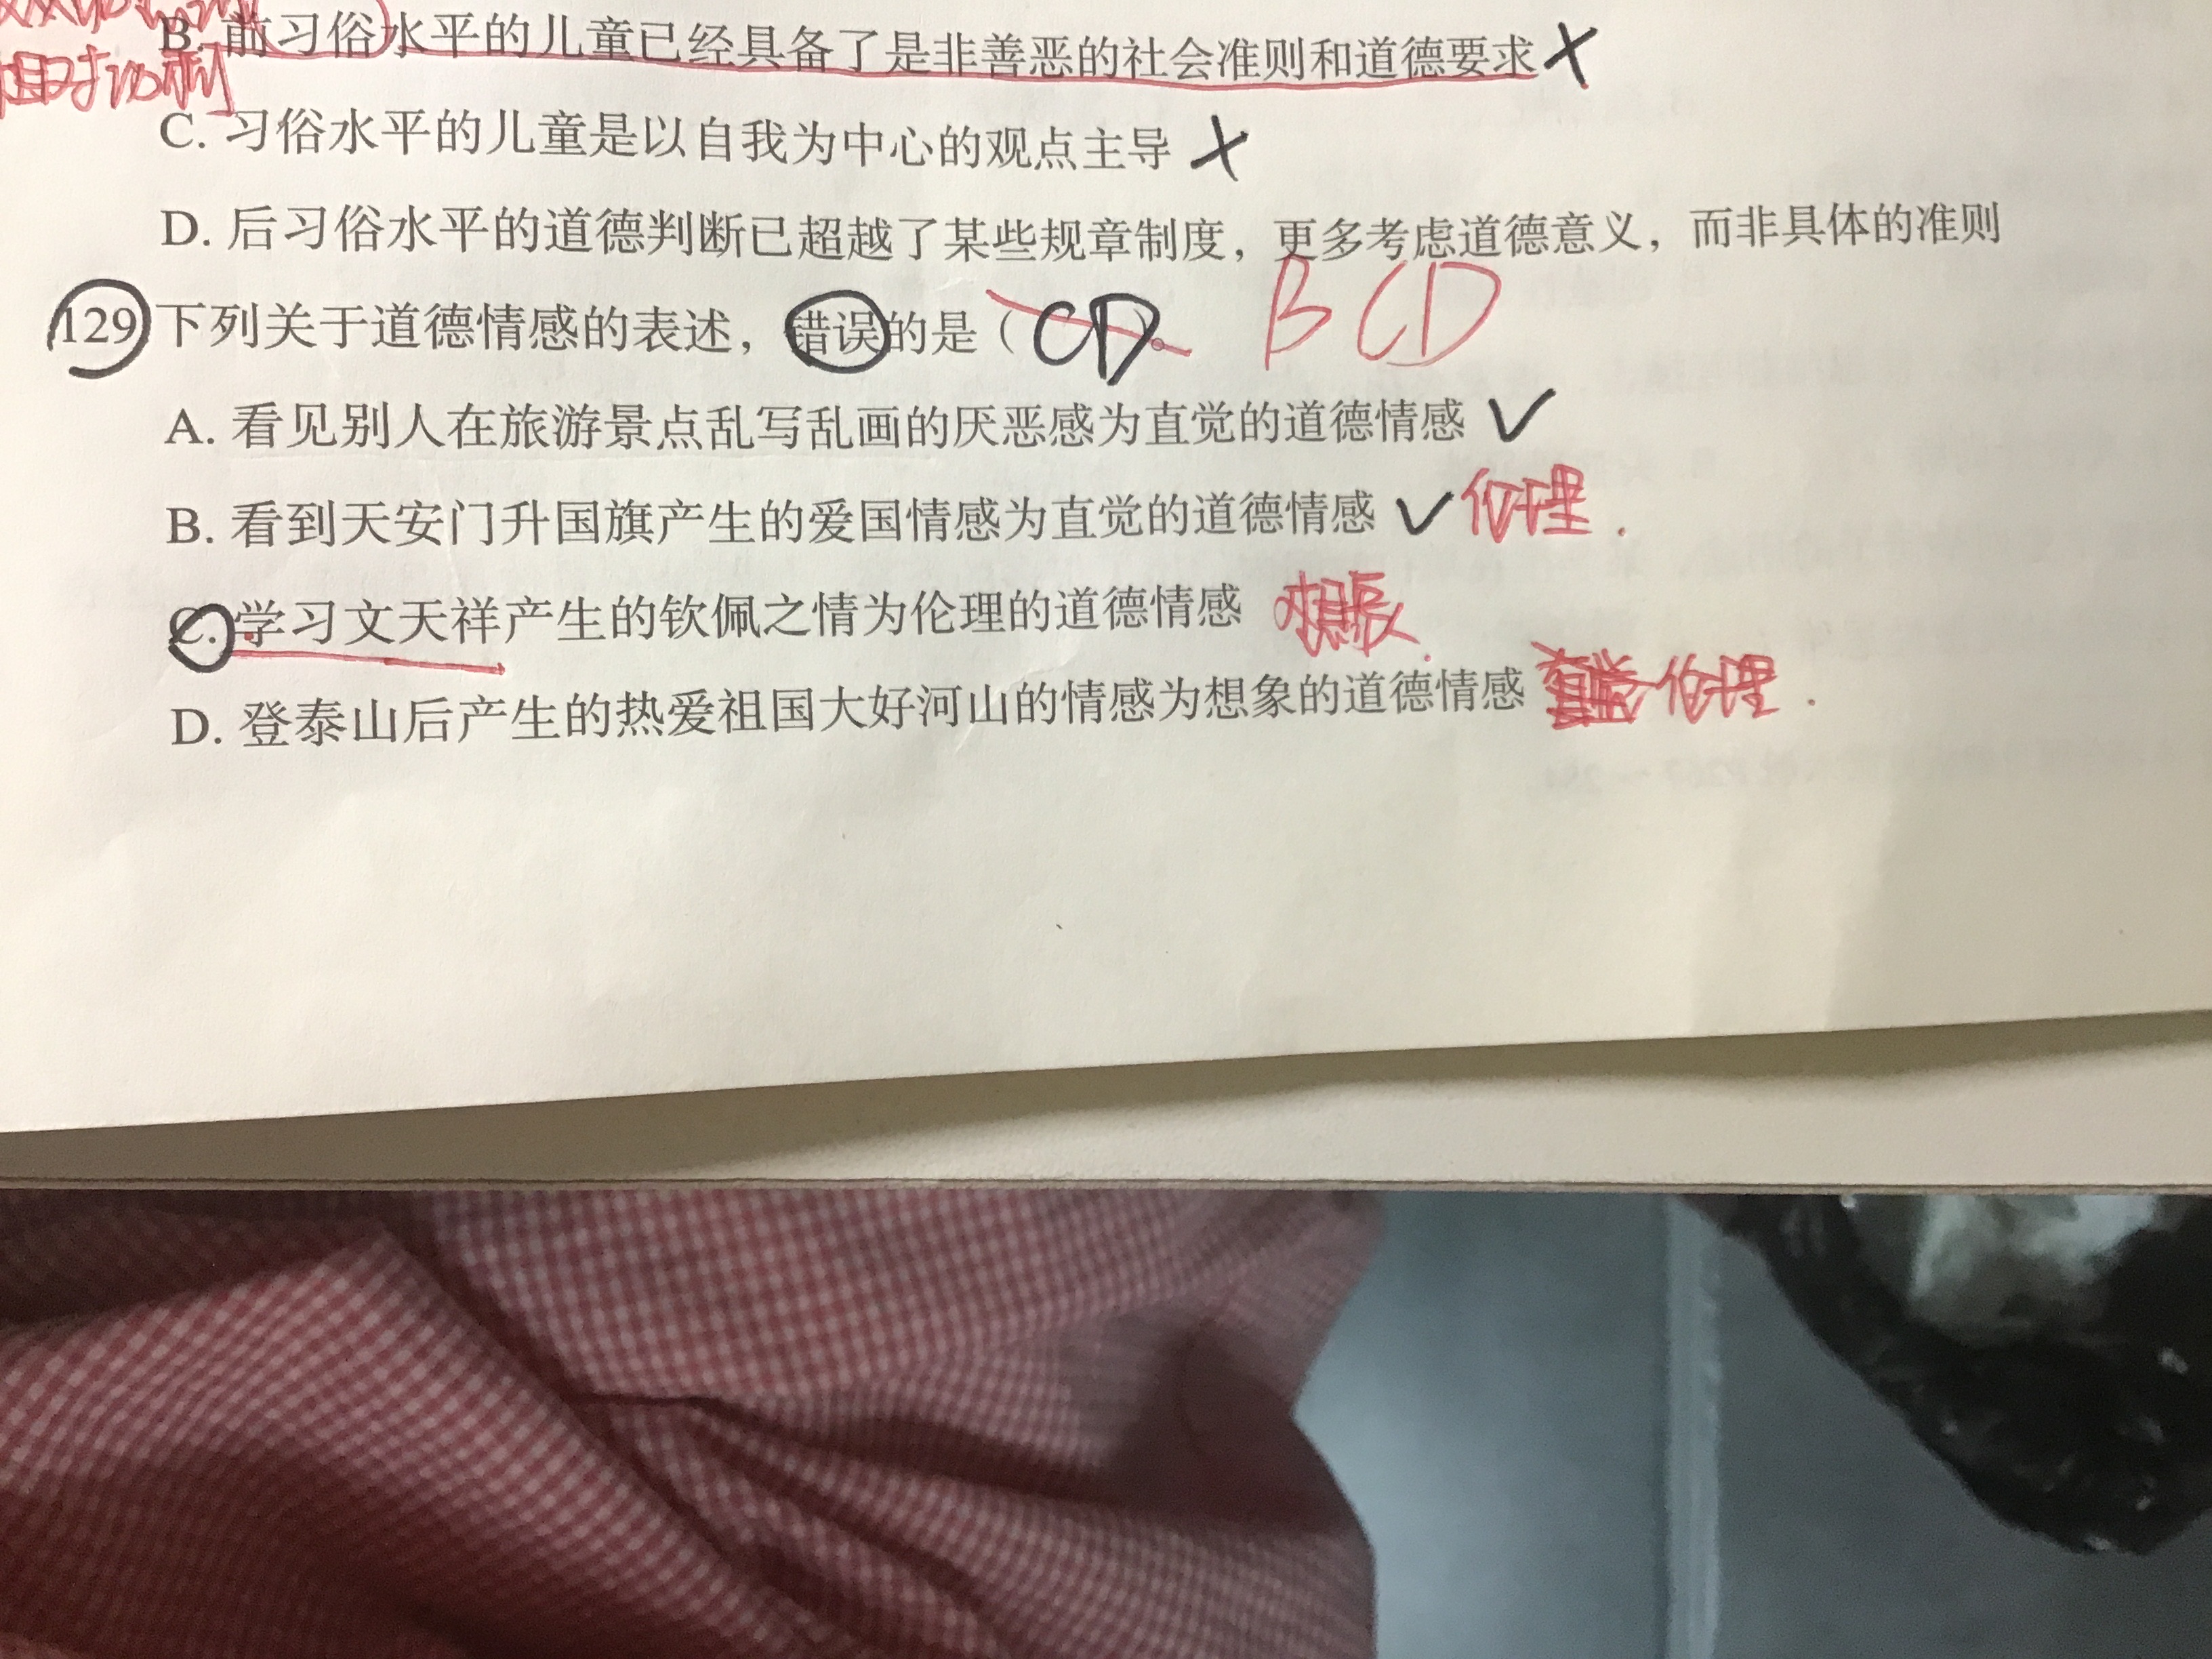 相对功利
B. 前习俗水平的儿童已经具备了是非善恶的社会准则和道德要求 ×
C. 习俗水平的儿童是以自我为中心的观点主导 ×
D. 后习俗水平的道德判断已超越了某些规章制度，更多考虑道德意义，而非具体的准则
129 下列关于道德情感的表述，错误的是（CD）。 BCD
A. 看见别人在旅游景点乱写乱画的厌恶感为直觉的道德情感 ✓
B. 看到天安门升国旗产生的爱国情感为直觉的道德情感 ✓ 伦理.
C. 学习文天祥产生的钦佩之情为伦理的道德情感 想象.
D. 登泰山后产生的热爱祖国大好河山的情感为想象的道德情感 伦理.